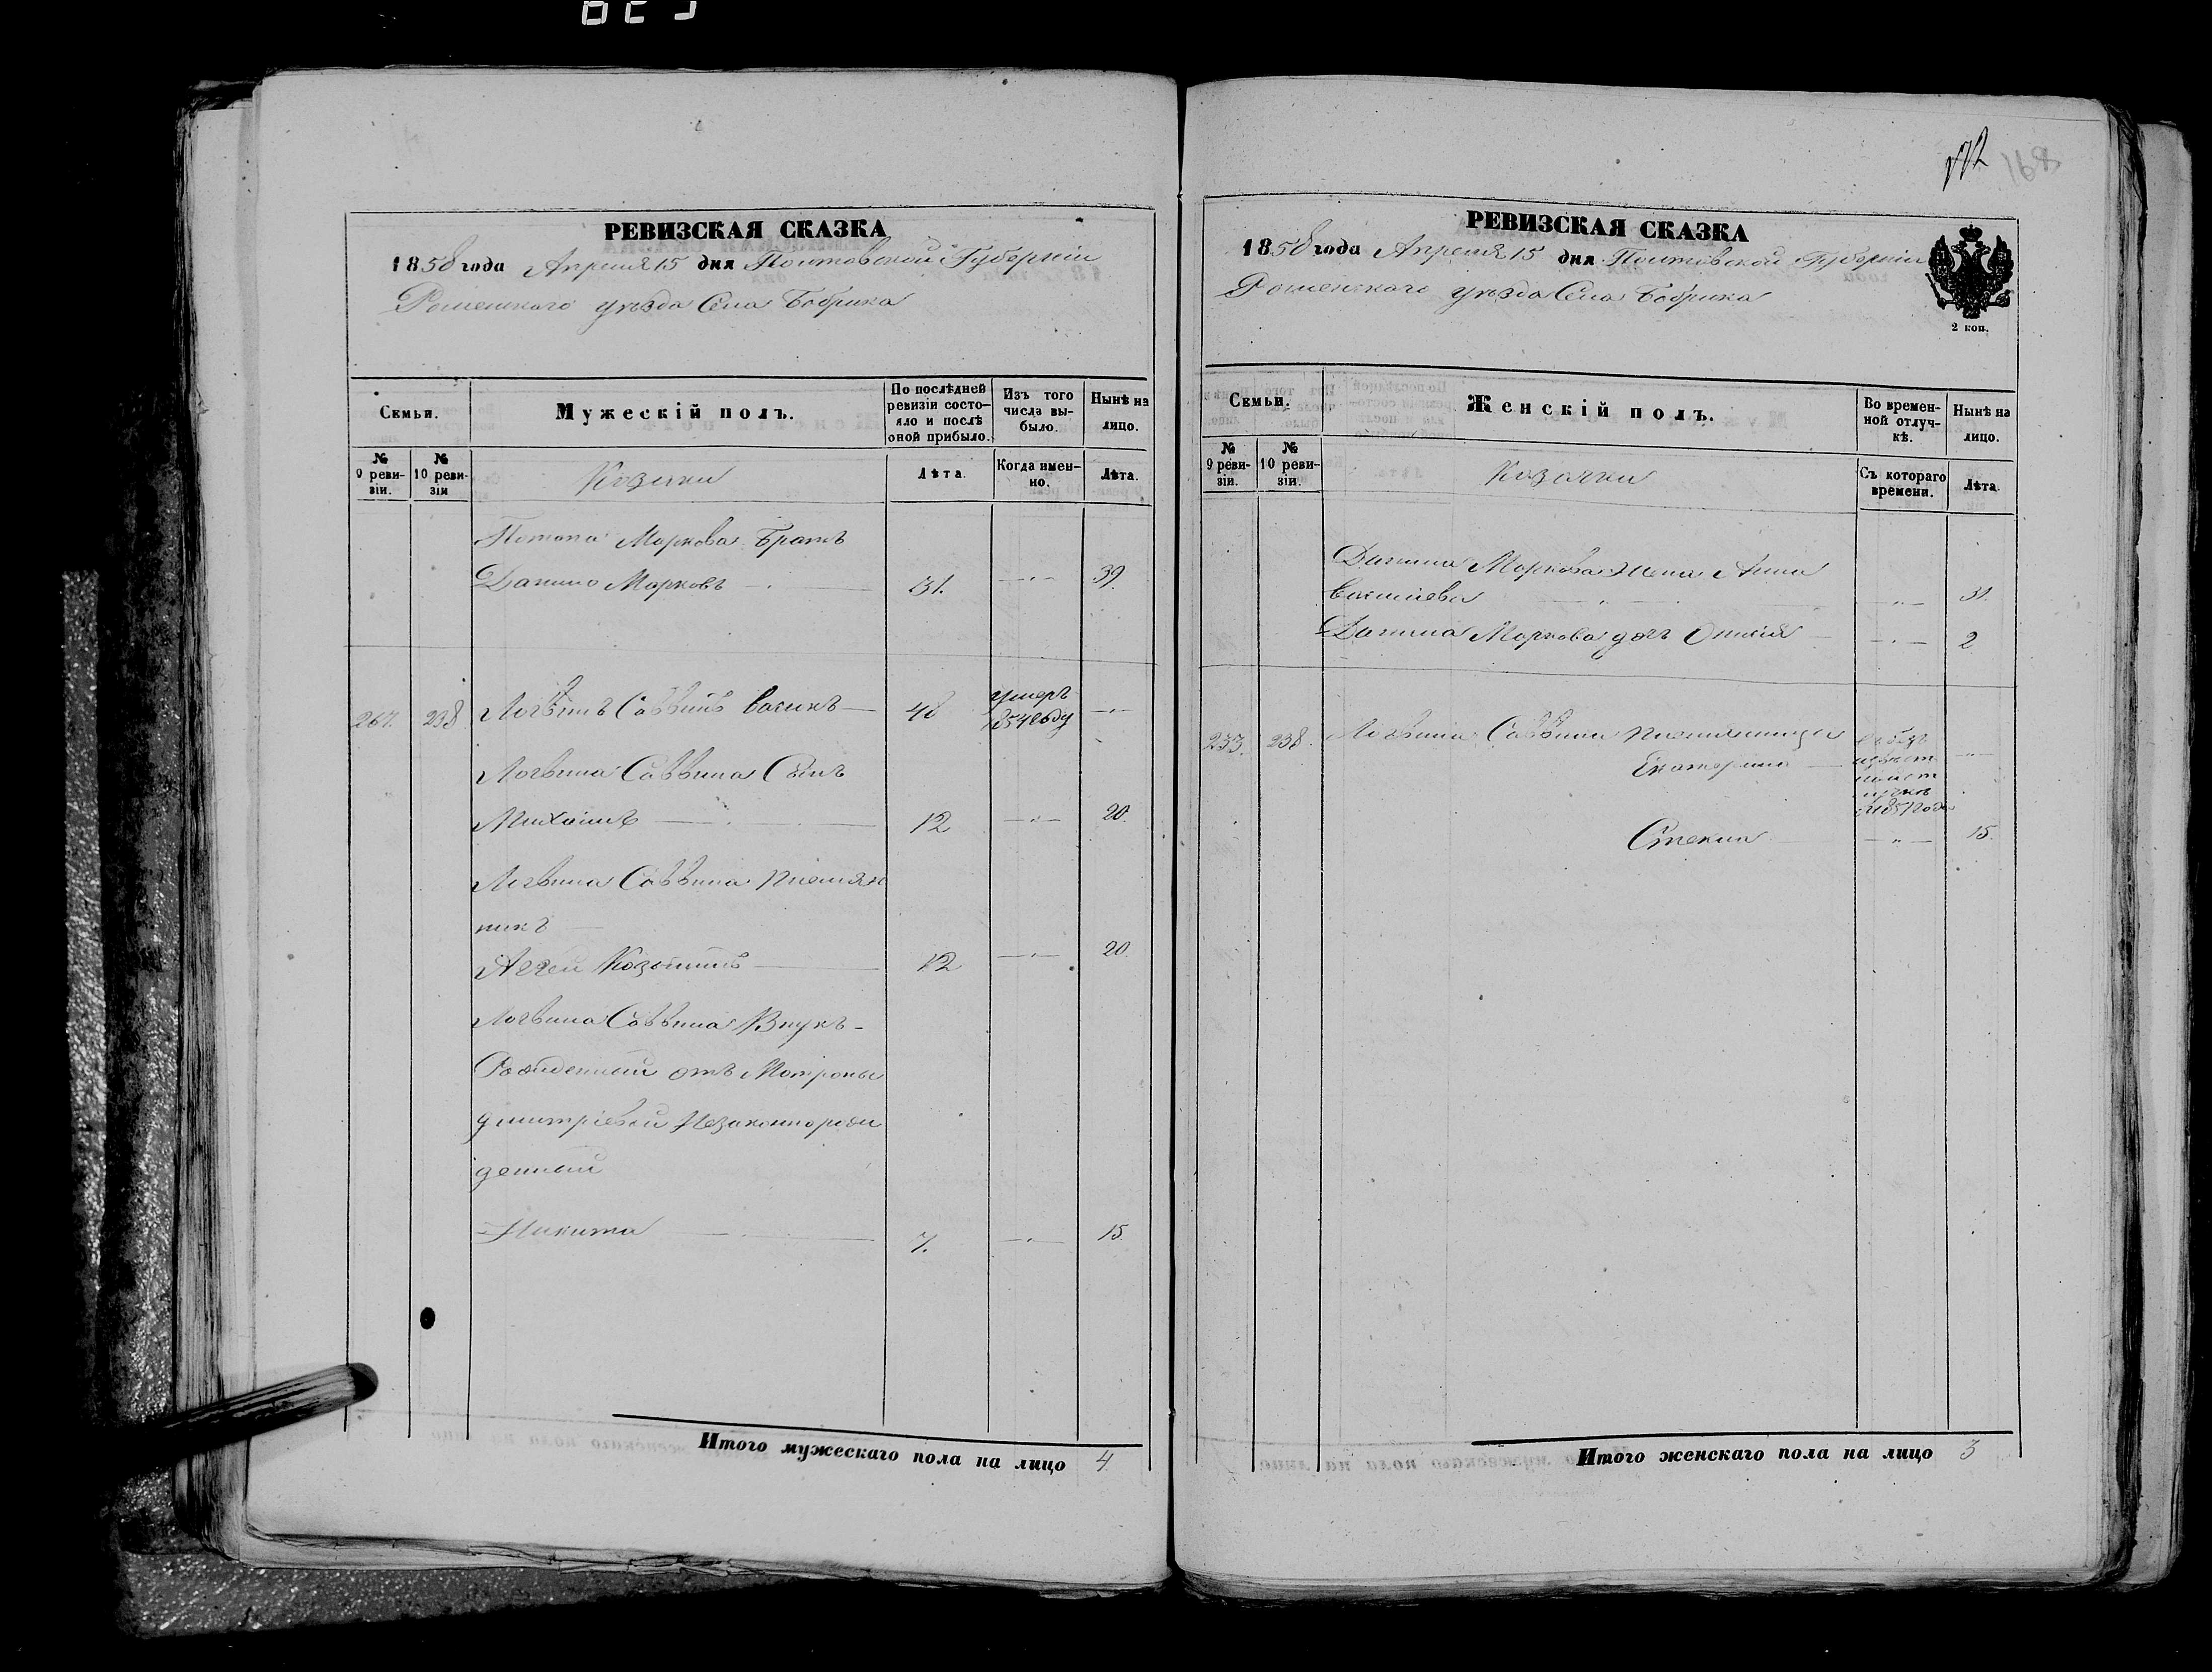 РЕВИЗСКАЯ СКАЗКА
1858 года Апреля 15 дня Полтавской Губернiи
Роменского уѣзда Села Бобрика
Семьи.
Мужескiй полъ.
По послѣдней ревизiи состояло и послѣ оной прибыло.
Изъ того числа выбыло.
Нынѣ на лицо.
№ 9 ревизiи.
№ 10 ревизiи
Козаки
Лѣта.
Когда именно.
Лѣта.
Потапа Маркова Братъ
Данило Марковъ 31. 39.
267. 238 Логвинъ Саввинъ 48 умеръ 1854 году
Логвина Саввина Сынъ
Михаилъ 12 20.
Логвина Саввина Племян
никъ
Аггей Козьминъ 12 20.
Логвина Саввина Внукъ
Рожденный отъ Мотроны
Дмитрiевой Незаконнорож
денный
Никита 7. 15.
Итого мужескаго пола на лицо 4
172
168
РЕВИЗСКАЯ СКАЗКА
1858 года Апреля 15 дня Полтавской Губернiи
Роменского уѣзда Села Бобрика
2 коп.
Семьи.
Женскiй полъ.
Во временной отлучкѣ.
Нынѣ на лицо.
№ 9 ревизiи.
№ 10 ревизiи.
Козачки
Съ котораго времени.
Лѣта.
Данила Маркова Жена Анна
31.
Данила Маркова дочь 2
233. 238. Логвина Саввина племянница
Екатерина
15.
Итого женскаго пола на лицо 3